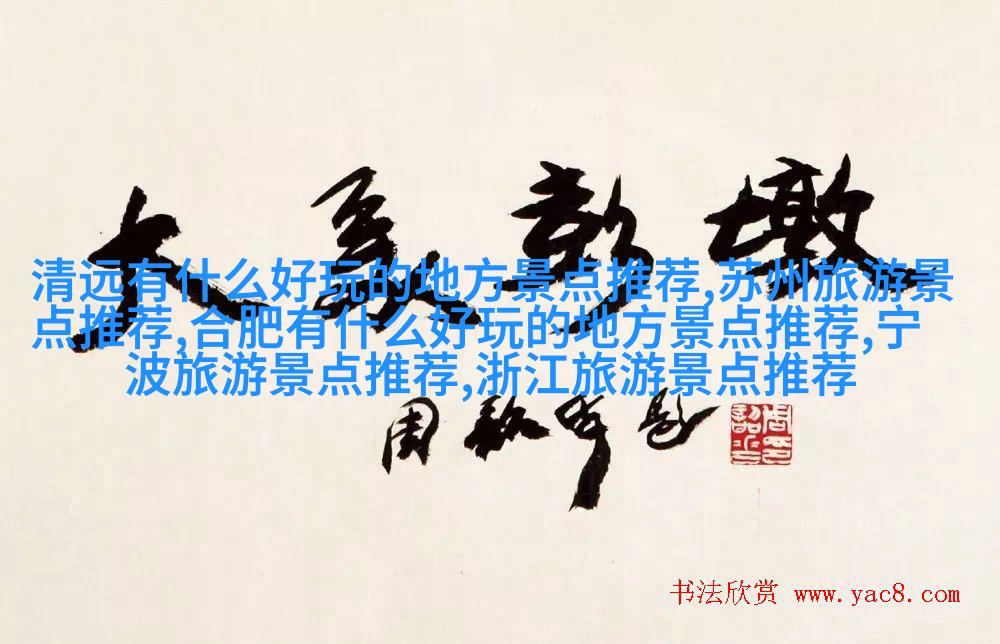 大美彭墩
清远有什么好玩的地方景点推荐,苏州旅游景
点推荐,合肥有什么好玩的地方景点推荐,宁
波旅游景点推荐,浙江旅游景点推荐
周 题
书法欣赏 www.yac8.com